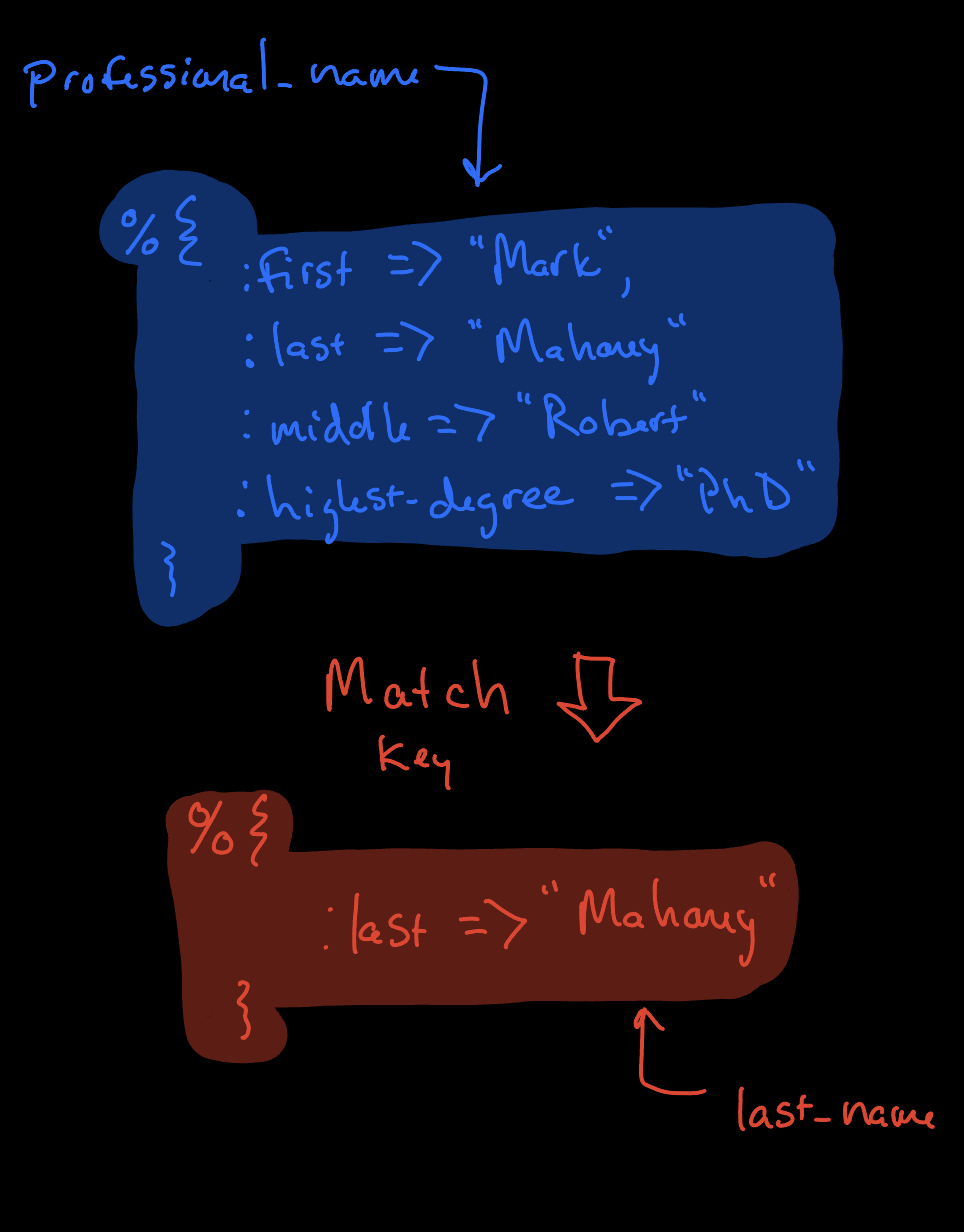 professional_name
%{
:first => "Mark",
:last => "Mahoney"
:middle => "Robert"
:highest-degree => "PhD"
}
Match
Key
%{
:last => "Mahoney"
}
last_name